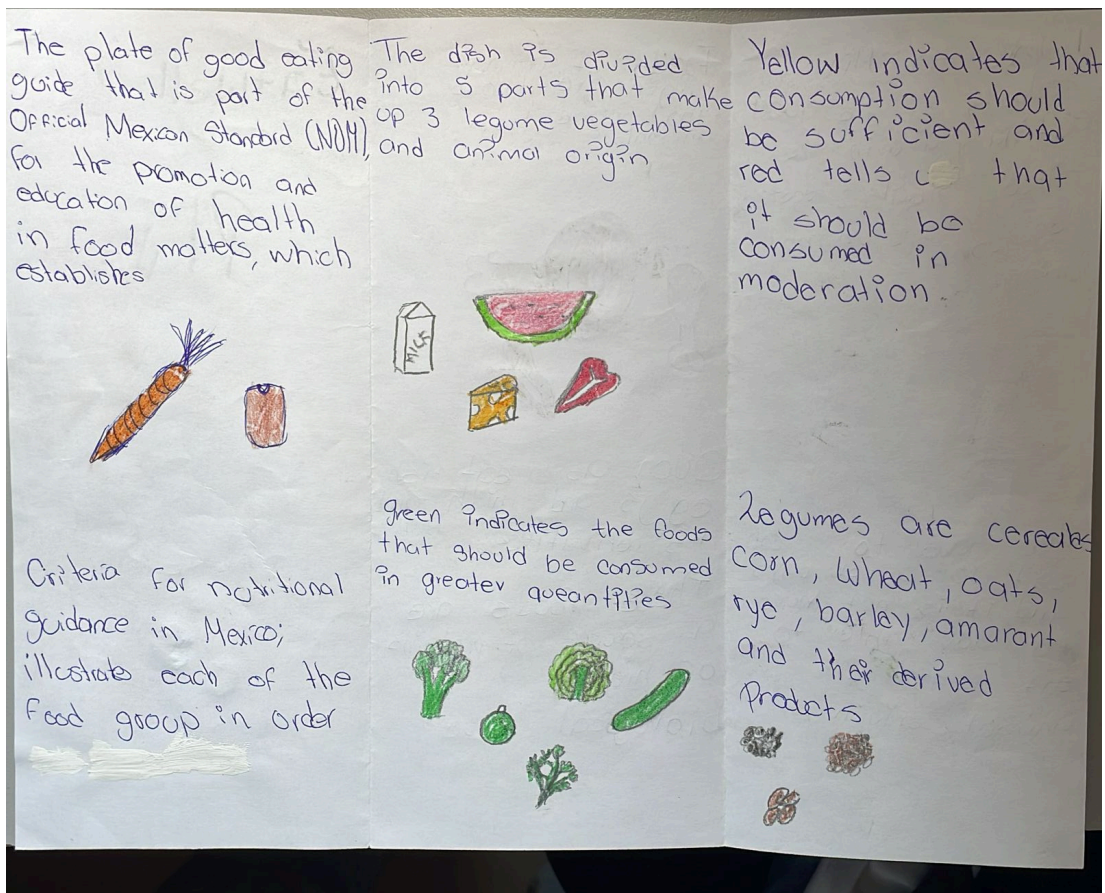 The plate of good eating
guide that is part of the
Official Mexican Standard (NOM),
for the promotion and
education of health
in food matters, which
establishes
Criteria for nutritional
guidance in Mexico;
illustrate each of the
food group in order
The dish is divided
into 5 parts that make
up 3 legume vegetables
and animal origin
MILK
green indicates the foods
that should be consumed
in greater queantities
Yellow indicates that
consumption should
be sufficient and
red tells that
it should be
consumed in
moderation.
Legumes are cereales
corn, wheat, oats,
rye, barley, amarant
and their derived
products